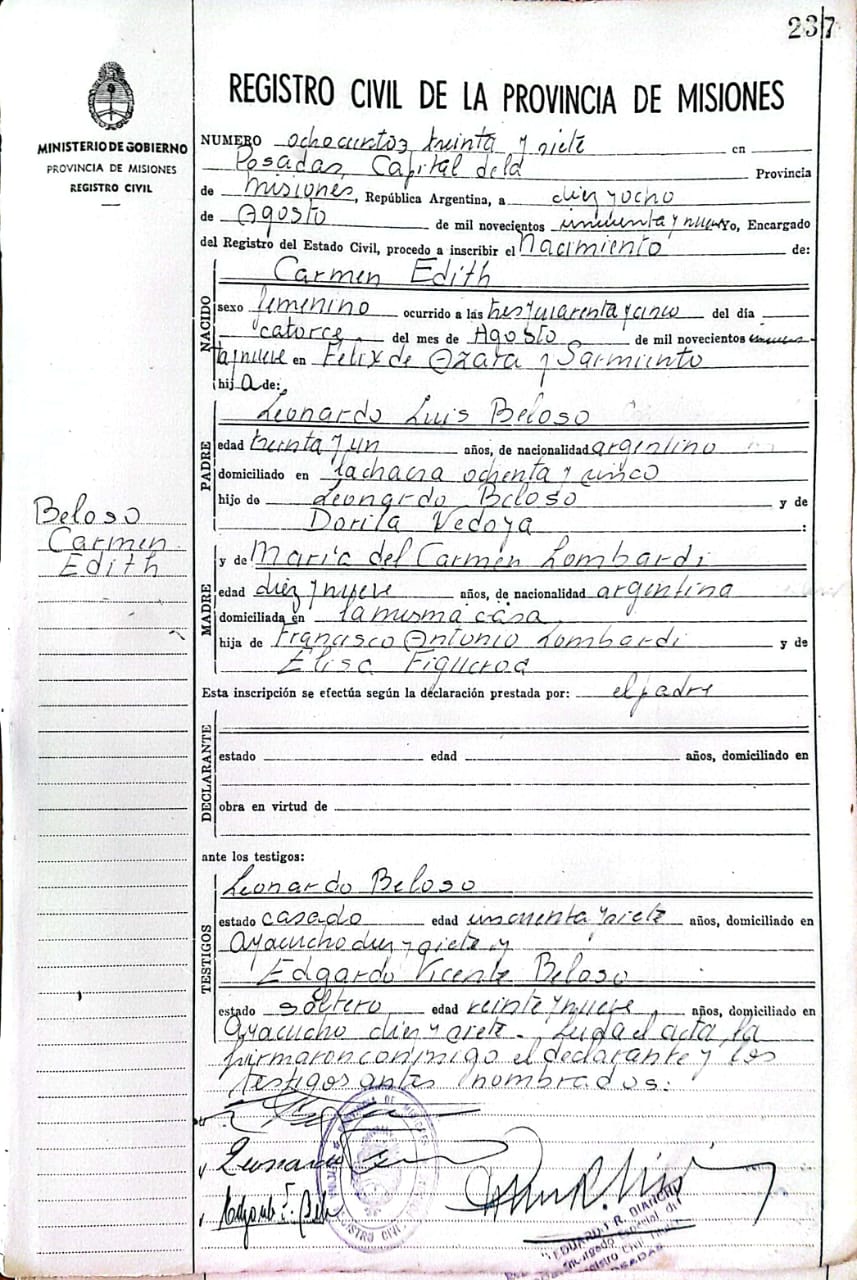 237
MINISTERIO DE GOBIERNO
PROVINCIA DE MISIONES
REGISTRO CIVIL
REGISTRO CIVIL DE LA PROVINCIA DE MISIONES
NUMERO ochocientos treinta y siete en
Posadas, Capital de la Provincia
de Misiones, República Argentina, a diez y ocho
de Agosto de mil novecientos cincuenta y nueve Yo, Encargado
del Registro del Estado Civil, procedo a inscribir el Nacimiento de:
NACIDO
Carmen Edith
sexo femenino ocurrido a las tres y cuarenta y cinco del día
catorce del mes de Agosto de mil novecientos cincuen-
ta y nueve en Felix de Azara y Sarmiento
hij a de:
PADRE
Leonardo Luis Beloso
edad treinta y un años, de nacionalidad argentino
domiciliado en la chacra ochenta y cinco
hijo de Leonardo Beloso y de
Dorila Vedoya :
Beloso
Carmen
Edith
MADRE
y de María del Carmen Lombardi
edad diez y nueve años, de nacionalidad argentina
domiciliada en la misma casa
hija de Francisco Antonio Lombardi y de
Elisa Figueroa
Esta inscripción se efectúa según la declaración prestada por: el padre
DECLARANTE
estado edad años, domiciliado en
obra en virtud de
ante los testigos:
TESTIGOS
Leonardo Beloso
estado casado edad cincuenta y siete años, domiciliado en
Ayacucho diez y siete y
Edgardo Vicente Beloso
estado soltero edad veinte y nueve años, domiciliado en
Ayacucho diez y siete - Leida el acta, la
firmaron conmigo el declarante y los
testigos antes nombrados:
Leonardo
EDUARDO R. BIANCHI